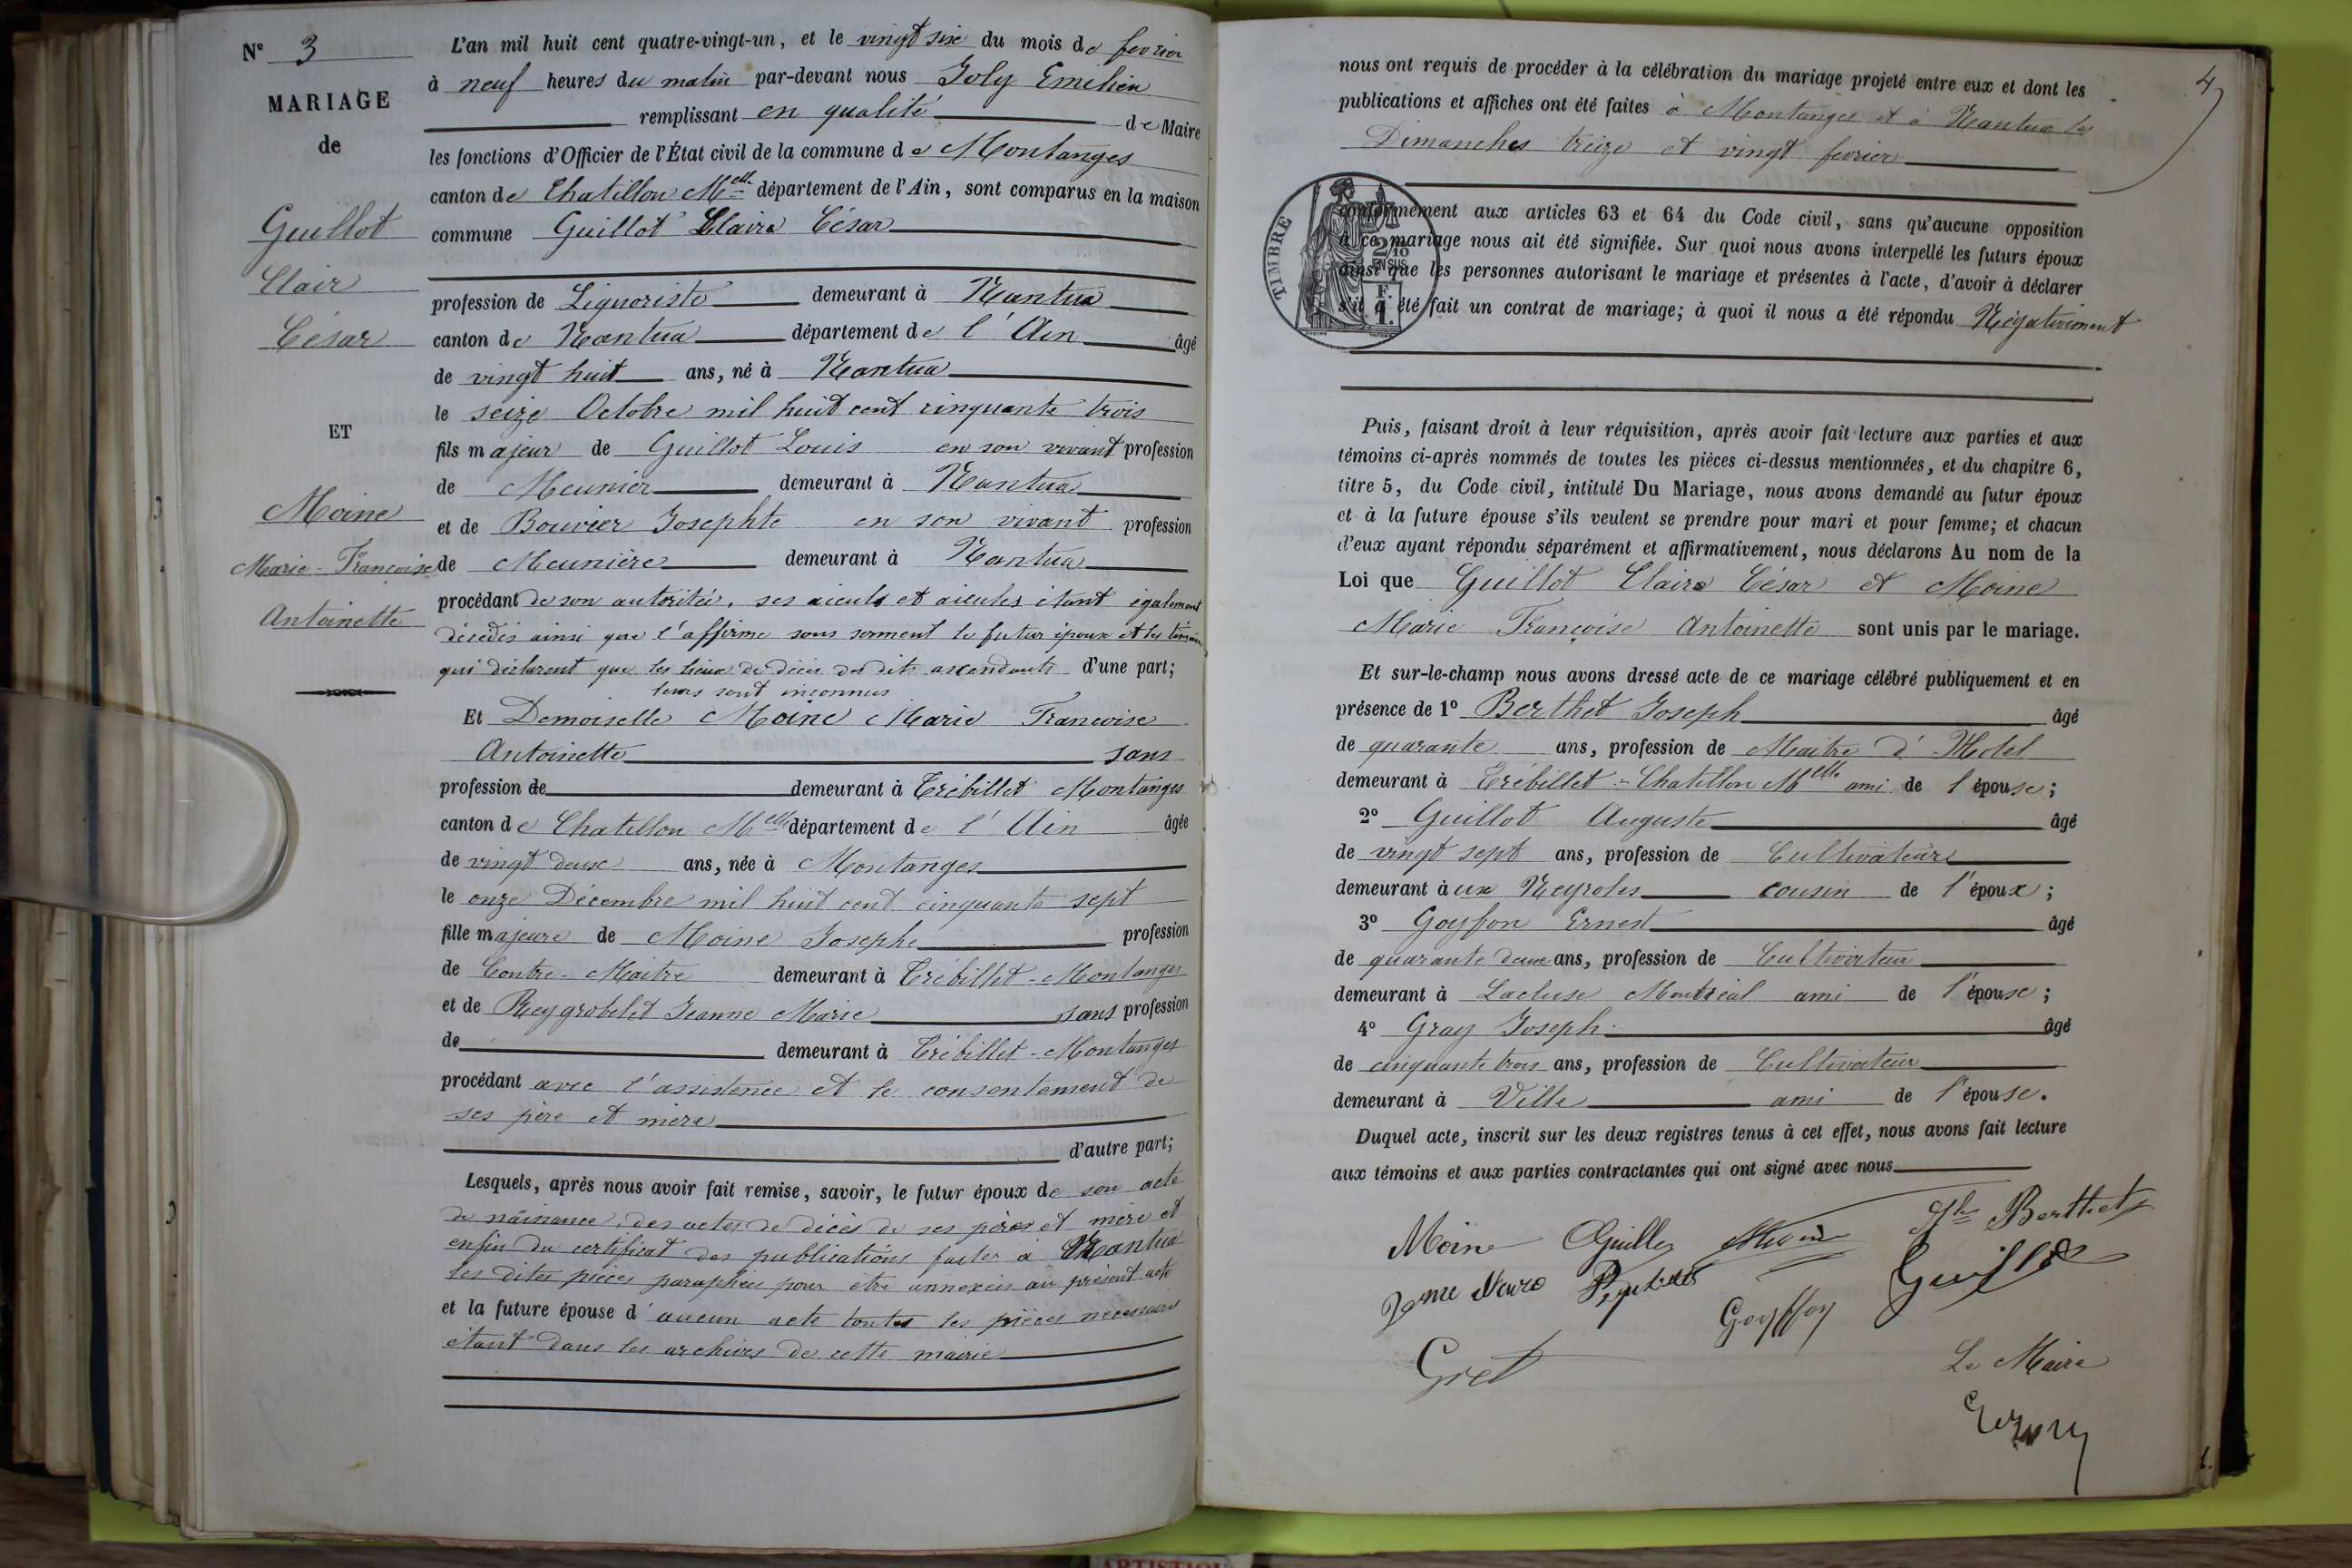 N° 3
MARIAGE
de
Guillot
Clair
César
ET
Moine
Marie-Françoise
Antoinette
L'an mil huit cent quatre-vingt-un, et le vingt six du mois de fevrier
à neuf heures du matin par-devant nous Joly Emilien
remplissant en qualité de Maire
les fonctions d'Officier de l'État civil de la commune de Montanges
canton de Chatillon Mlle département de l'Ain, sont comparus en la maison
commune Guillot Claire César
profession de Liquoriste demeurant à Nantua
canton de Nantua département de l'Ain âgé
de vingt huit ans, né à Nantua
le seize Octobre mil huit cent cinquante trois
fils majeur de Guillot Louis en son vivant profession
de Meunier demeurant à Nantua
et de Bouvier Josephte en son vivant profession
de Meunière demeurant à Nantua
procédant de son autoritée, ses aieuls et aieules étant également
décédés ainsi que l'affirme sous serment le futur époux et les témoins
qui déclarent que les lieux de décès des dits ascendants d'une part;
leurs sont inconnus
Et Demoiselle Moine Marie Francoise
Antoinette sans
profession de demeurant à Trébillet Montanges
canton de Chatillon Mlle département de l'Ain âgée
de vingt deux ans, née à Montanges
le onze Décembre mil huit cent cinquante sept
fille majeure de Moine Josephe profession
de Contre-Maitre demeurant à Trébillet-Montanges
et de Reygrobelet Jeanne Marie sans profession
de demeurant à Trébillet-Montanges
procédant avec l'assistence et le consentement de
ses père et mère
d'autre part;
Lesquels, après nous avoir fait remise, savoir, le futur époux de son acte
de naissance, des actes de décès de ses pères et mère et
enfin du certificat des publications faites à Nantua
les dites pièces paraphées pour être annexées au présent acte
et la future épouse d'aucun acte toutes les pièces necessaires
étant dans les archives de cette mairie
4
nous ont requis de procéder à la célébration du mariage projeté entre eux et dont les
publications et affiches ont été faites à Montanges et à Nantua les
Dimanches treize et vingt fevrier
TIMBRE
2/10
EN SUS
F.
1.
conformément aux articles 63 et 64 du Code civil, sans qu'aucune opposition
à ce mariage nous ait été signifiée. Sur quoi nous avons interpellé les futurs époux
ainsi que les personnes autorisant le mariage et présentes à l'acte, d'avoir à déclarer
s'il a été fait un contrat de mariage; à quoi il nous a été répondu Négativement
Puis, faisant droit à leur réquisition, après avoir fait lecture aux parties et aux
témoins ci-après nommés de toutes les pièces ci-dessus mentionnées, et du chapitre 6,
titre 5, du Code civil, intitulé Du Mariage, nous avons demandé au futur époux
et à la future épouse s'ils veulent se prendre pour mari et pour femme; et chacun
d'eux ayant répondu séparément et affirmativement, nous déclarons Au nom de la
Loi que Guillot Claire César et Moine
Marie Françoise Antoinette sont unis par le mariage.
Et sur-le-champ nous avons dressé acte de ce mariage célébré publiquement et en
présence de 1° Berthet Joseph âgé
de quarante ans, profession de Maitre d'Hotel
demeurant à Trébillet-Chatillon Mlle ami de l'épouse;
2° Guillot Auguste âgé
de vingt sept ans, profession de Cultivateur
demeurant à ux Neyroles cousin de l'époux;
3° Goyffon Ernest âgé
de quarante deux ans, profession de Cultivateur
demeurant à Lacluse Montréal ami de l'épouse;
4° Gray Joseph âgé
de cinquante trois ans, profession de Cultivateur
demeurant à Ville ami de l'épouse.
Duquel acte, inscrit sur les deux registres tenus à cet effet, nous avons fait lecture
aux témoins et aux parties contractantes qui ont signé avec nous
Moine Moine Jh Berthet
Guillot
Goyffon
Le Maire